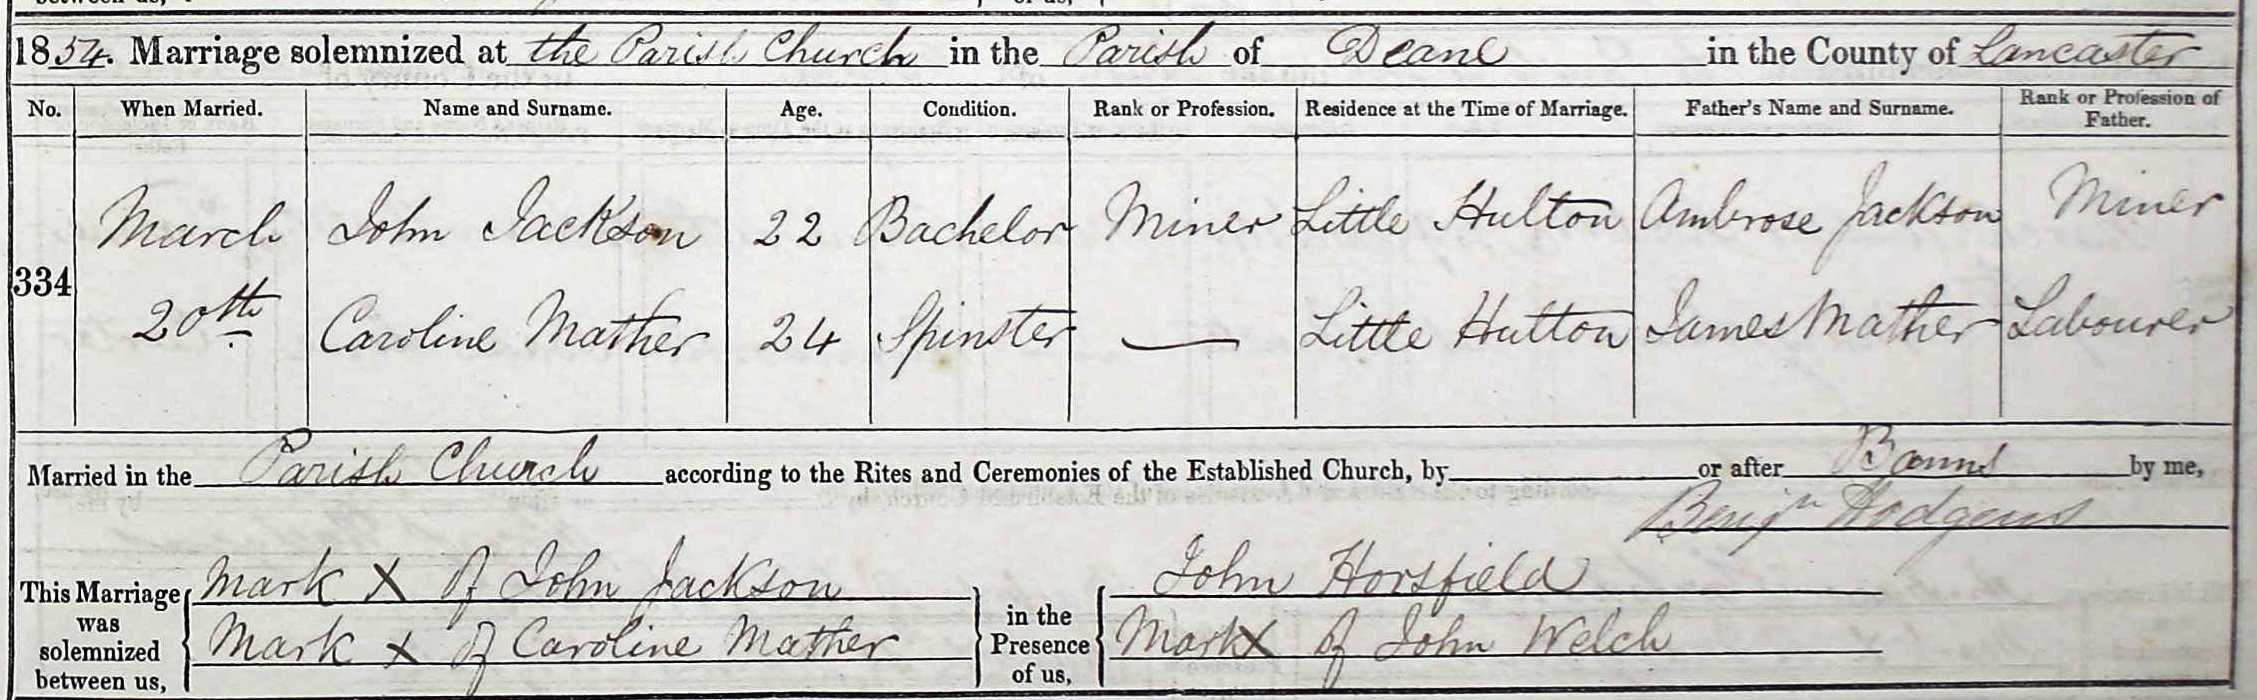 1854. Marriage solemnized at the Parish Church in the Parish of Deane in the County of Lancaster
No. When Married. Name and Surname. Age. Condition. Rank or Profession. Residence at the Time of Marriage. Father's Name and Surname. Rank or Profession of Father.
March John Jackson 22 Bachelor Miner Little Hulton Ambrose Jackson Miner
334
20th Caroline Mather 24 Spinster — Little Hulton James Mather Labourer
Married in the Parish Church according to the Rites and Ceremonies of the Established Church, by or after Banns by me,
Benjn Hodgens
This Marriage was solemnized between us,
Mark X of John Jackson
Mark X of Caroline Mather
in the Presence of us,
John Horsfield
Mark X of John Welch